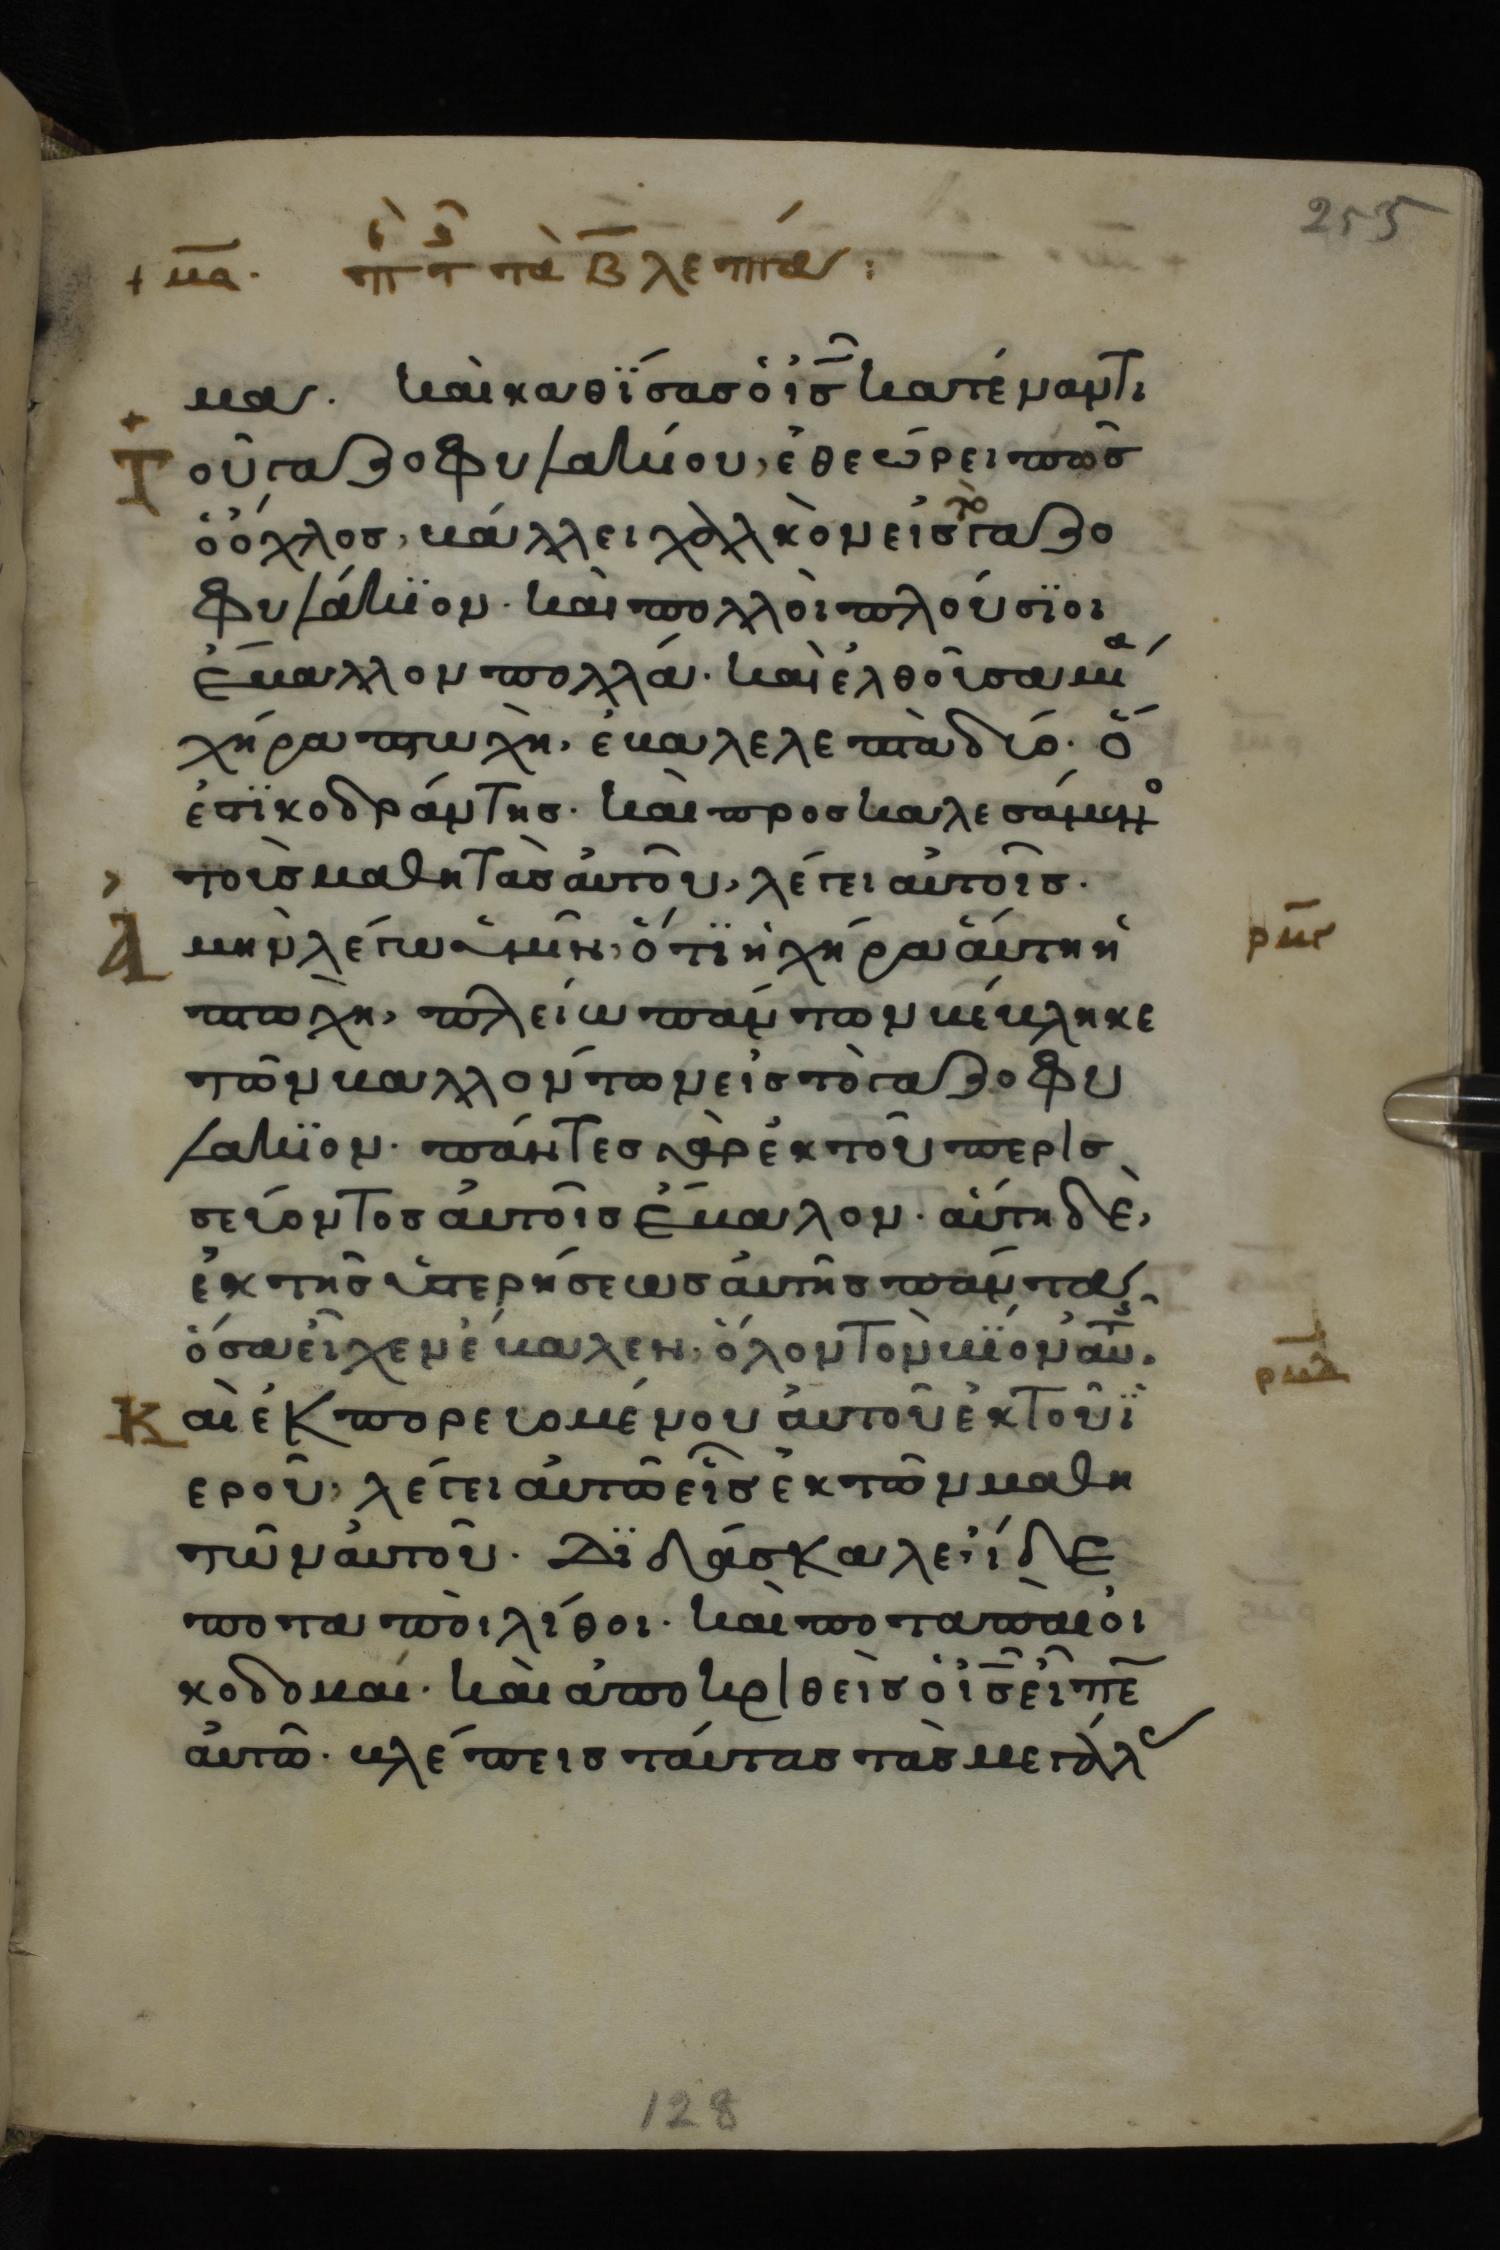 255
+ μα. π τ τα β λεπτα:
μα. και καθϊσας ὁ ι̅ς̅ κατέναντι
τοῦ γαζοφυλακίου, ἐθεώρει πῶς
ὁ ὄχλος, βάλλει χαλκὸν εἰς το γαζο
φυλάκϊον. καὶ πολλοὶ πλούσϊοι
ἔβαλλον πολλά. καὶ ἐλθοῦσα μία
χήρα πτωχὴ, ἔβαλε λεπτὰ δύο. ὅ
ἐστϊ κοδράντης. καὶ προσκαλεσάμενος
τοὺς μαθητὰς αὐτοῦ, λέγει αὐτοῖς.
ρμγ
Ἀμὴν λέγω ὑμῖν, ὅτϊ ἡ χήρα αὕτη ἡ
πτωχὴ, πλείω πάντων βέβληκε
τῶν βαλλόντων εἰς τὸ γαζοφυ
λάκϊον. πάντες γὰρ ἐκ τοῦ περισ
σεύοντος αὐτοῖς ἔβαλον. αὕτη δὲ,
ἐκ τῆς ὑστερήσεως αὐτῆς πάντα
ὅσα εἶχεν ἔβαλεν, ὅλον τὸν βϊον αὐτῆς.
ρμδ
Καὶ ἐκπορευομένου αὐτοῦ ἐκ τοῦ ϊ
εροῦ, λέγει αὐτῶ εἷς ἐκ τῶν μαθη
τῶν αὐτοῦ. Δϊδάσκαλε, ἴδε
ποταποὶ λίθοι. καὶ ποταπαὶ οἰ
κοδομαί. καὶ ἀποκριθεὶς ὁ ι̅ς̅ εἶπε
αὐτῶ. βλέπεις ταύτας τὰς μεγάλ
128